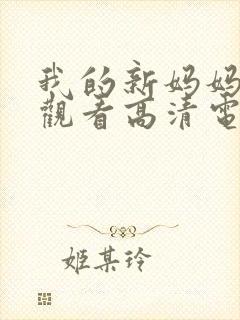 我的新妈妈
觀看高清電
姬某玲